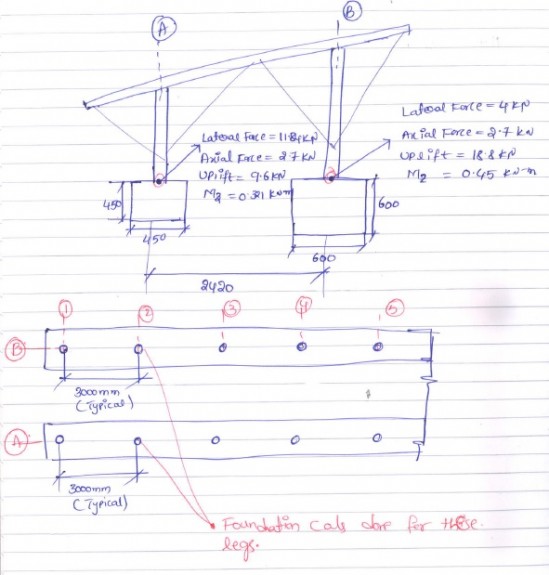 A
B
Lateral Force = 11.84 KN
Axial Force = 27 KN
Uplift = 9.6 KN
Mz = 0.321 KN-m
Lateral Force = 4 KN
Axial Force = 2.7 KN
Uplift = 18.8 KN
Mz = 0.45 KN-m
450
450
600
600
2420
1
2
3
4
5
B
3000mm
(Typical)
A
3000mm
(Typical)
Foundation cals done for these
legs.